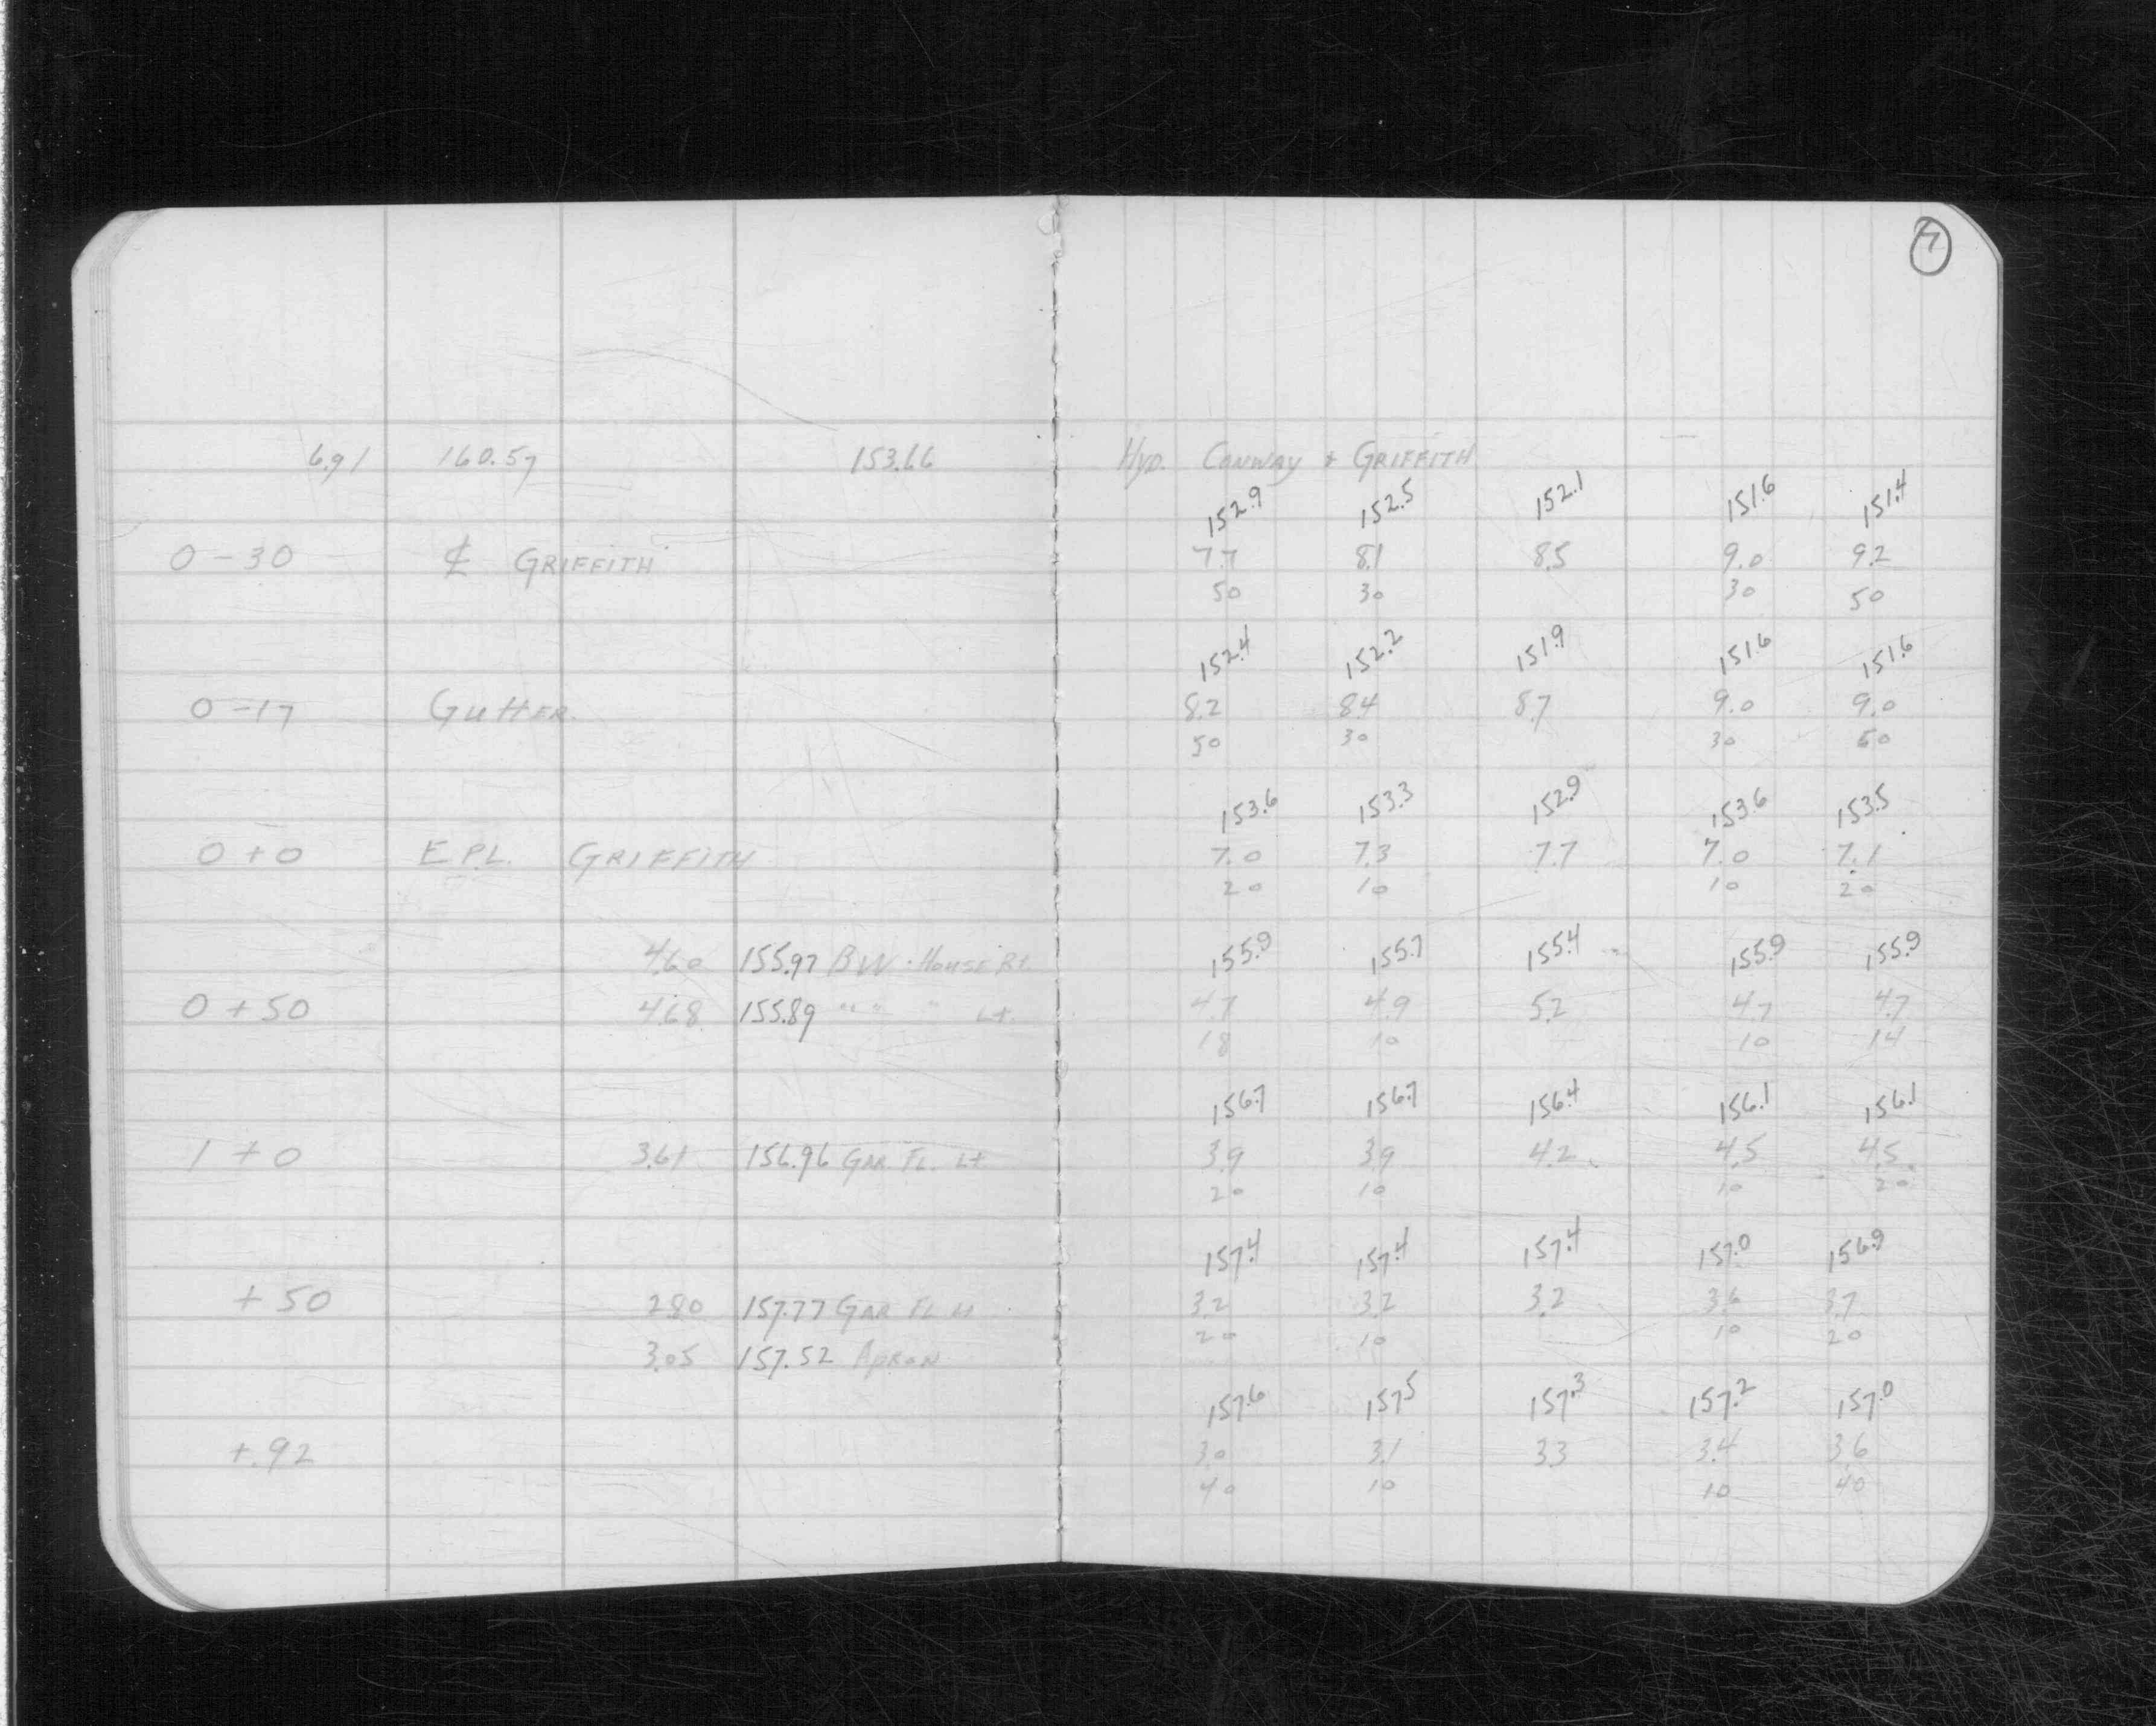 7
6.91 160.57 153.66 Hyd. Conway + Griffith
152.9 152.5 152.1 151.6 151.4
0-30 ₵ Griffith 7.7 8.1 8.5 9.0 9.2
50 30 30 50
152.4 152.2 151.9 151.6 151.6
0-17 Gutter 8.2 8.4 8.7 9.0 9.0
50 30 30 50
153.6 153.3 152.9 153.6 153.5
0+0 E.P.L. Griffith 7.0 7.3 7.7 7.0 7.1
20 10 10 20
4.60 155.97 BW. House Rt. 155.9 155.7 155.4 155.9 155.9
0+50 4.68 155.89 " " " Lt. 4.7 4.9 5.2 4.7 4.7
18 10 10 14
156.7 156.7 156.4 156.1 156.1
1+0 3.61 156.96 Gar Fl. Lt 3.9 3.9 4.2 4.5 4.5
20 10 10 20
157.4 157.4 157.4 157.0 156.9
+50 2.80 157.77 Gar Fl Lt 3.2 3.2 3.2 3.6 3.7
3.05 157.52 Apron 20 10 10 20
157.6 157.5 157.3 157.2 157.0
+.92 3.0 3.1 3.3 3.4 3.6
40 10 10 40